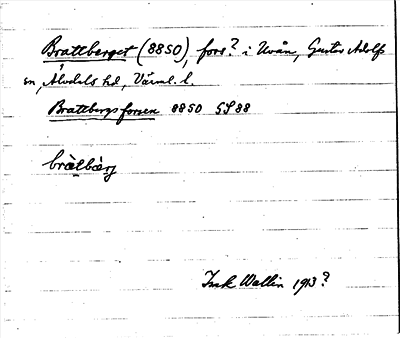 Brattberget (8850), fors? i Uvån, Gustav Adolfs
sn, Älvdals hd, Värml. l.
Brattbergsforsen 8850 GS88
Wallin 1913?